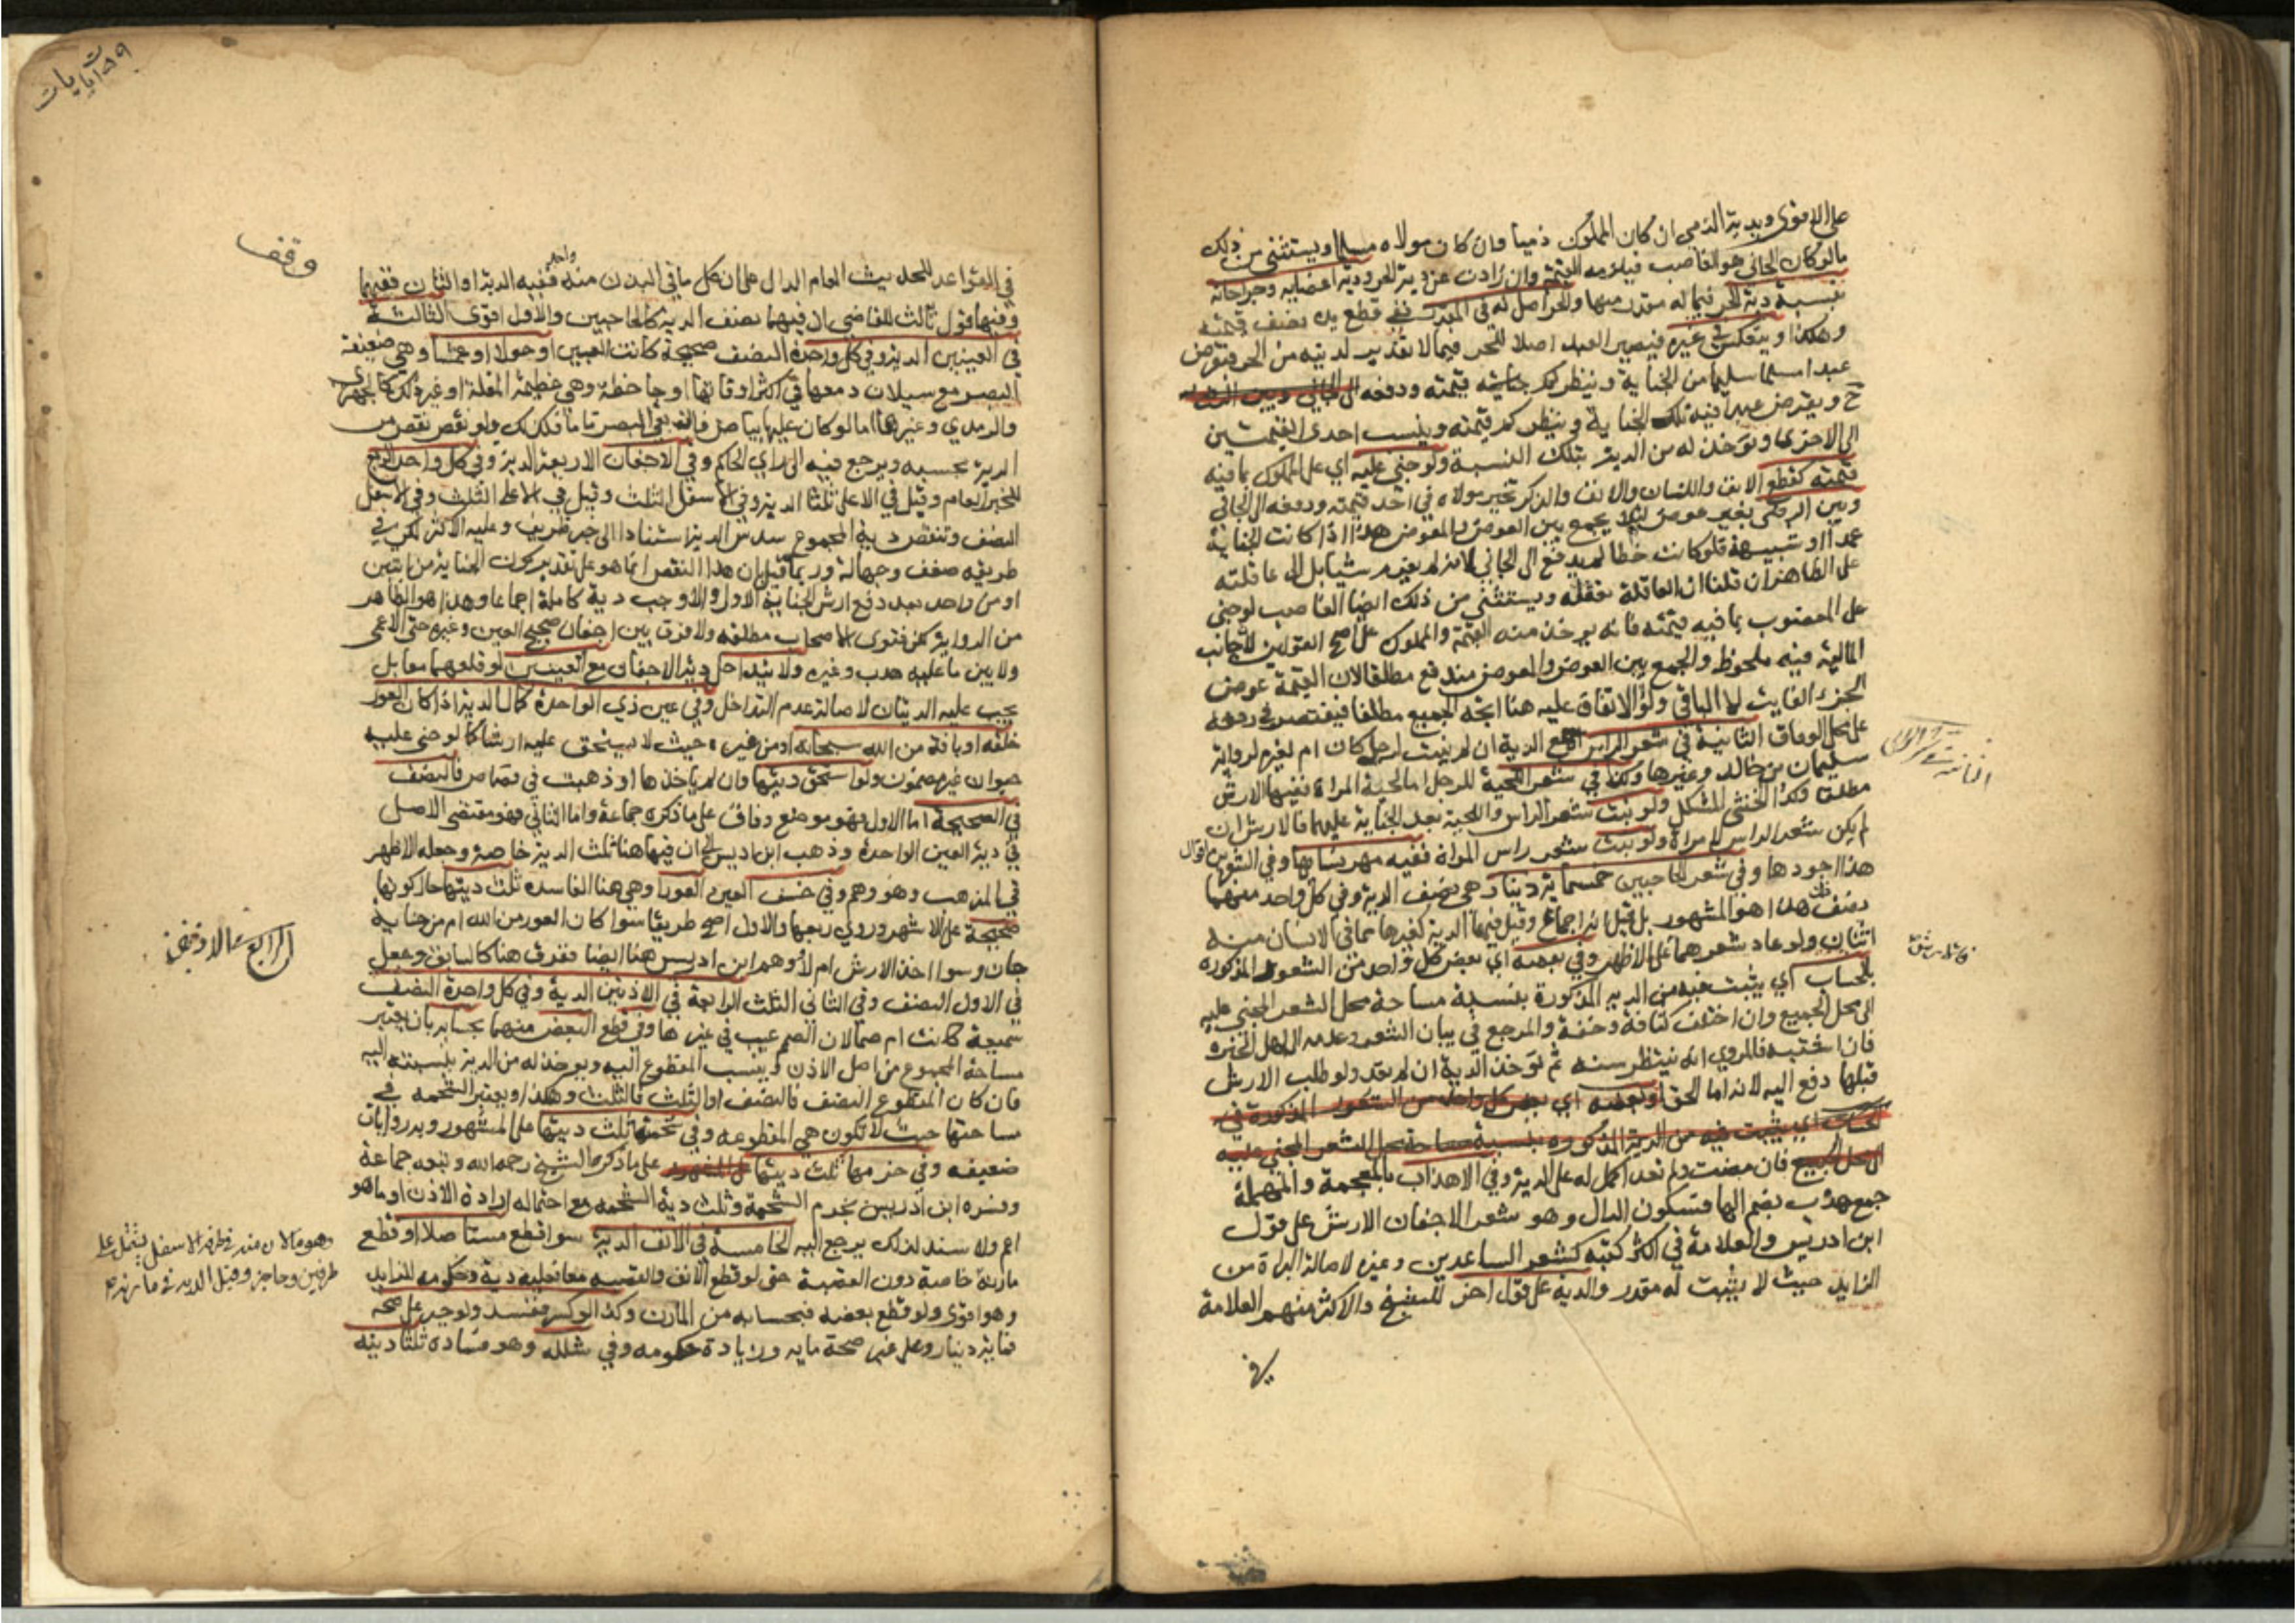 على الاقوى وبدية الذمي ان كان المملوك ذميا وان كان مولاه مسلما ويستثنى من ذلك
مالو كان الجاني هو الغاصب فيلزمه القيمة وان زادت عن دية الحر ودية اعضايه وجراحاته
بنسبة دية الحر فيما له مقدر منها والحر اصل له في المقدر ففي قطع يده نصف قيمته
وهكذا وينعكس في غيره فيصير العبد اصلا للحر فيما لا تقدير لديته من الحر فيفرض
عبدا سليما من الجناية وينظر كم قيمته
ح ويفرض عبدا فيه تلك الجناية وينظر كم قيمته وينسب احدى القيمتين
الى الاخرى ويوخذ له من الدية بتلك النسبة ولو جنى عليه اي على المملوك بما فيه
قيمته كقطع الانف واللسان والذكر تخير مولاه في اخذ قيمته ودفعه الى الجاني
وبين الرضى بغير عوض ليلا يجمع بين العوض والمعوض هذا اذا كانت الجناية
عمدا او شبيهه فلو كانت خطا لم يدفع الى الجاني لانه لم يغرم شيا بل الى عاقلته
على الظاهر ان قلنا ان العاقلة تعقله ويستثنى من ذلك ايضا الغاصب لو جنى
على المغصوب بما فيه قيمته فانه يوخذ منه القيمة والمملوك على اصح القولين لان جانب
المالية فيه ملحوظ والجمع بين العوض والمعوض مندفع مطلقا لان القيمة عوض
الجزء الفايت لا الباقي ولولا الاتفاق عليه هنا اتجه الجميع مطلقا فيقتصر في دفعه
على محل الوفاق الثانية في شعر الراس اجمع الدية ان لم ينبت لرجل كان ام لغيره لرواية
سليمان بن خالد وغيرها وكذا في شعر اللحية للرجل اما لحية المراة ففيها الارش
مطلقا وكذا الخنثى المشكل ولو نبت شعر الراس واللحية بعد الجناية عليهما فالارش ان
لم يكن شعر الراس لامراة ولو نبت شعر راس المراة ففيه مهر نسايها وفي الشعرين اقوال
هذا اجودها وفي شعر الحاجبين خمسماية دينار هي نصف الدية وفي كل واحد منهما
نصف ذلك هذا هو المشهور بل قيل انه اجماع وقيل فيهما الدية كغيرها مما في الانسان منه
اثنان ولو عاد شعرهما على الاظهر وفي بعضه اي بعض كل واحد من الشعور المذكورة
بالحساب اي يثبت فيه من الدية المذكورة بنسبة مساحة محل الشعر المجني عليه
الى محل الجميع وان اختلف كثافة وخفة والمرجع في بيان الشعر وعدمه الى اهل الخبرة
فان اشتبه فالمروي انه ينتظر سنة ثم توخذ الدية ان لم يعد ولو طلب الارش
قبلها دفع اليه لانه اما الحق او بعضه اي بعض كل واحد من الشعور المذكورة في
الحساب اي يثبت فيه من الدية المذكورة بنسبة مساحة محل الشعر المجني عليه
الى محل الجميع فان مضت ولم يعد اكمل له على الدية وفي الاهداب بالمعجمة والمهملة
جمع هدب بضم الها فسكون الدال وهو شعر الاجفان الارش على قول
ابن ادريس والعلامة في اكثر كتبه كشعر الساعدين وغيره لاصالة البراة من
الزايد حيث لا يثبت له مقدر والدية على قول اخر للشيخ والاكثر منهم العلامة
في
وقف
في القواعد للحديث العام الدال على ان كل ما في البدن منه واحد ففيه الدية او اثنان ففيهما
وفيها قول ثالث للقاضي ان فيهما نصف الدية كالحاجبين والاول اقوى الثالثة
في العينين الدية وفي كل واحدة النصف صحيحة كانت العين او حولا او عمشا وهي ضعيفة
البصر مع سيلان دمعها في اكثر اوقاتها او جاحظة وهي عظيمة المقلة او غير ذلك كالجهرى
والرمدي وغيرها اما لو كان عليها بياض فان بقي البصر تاما فكذلك ولو نقص نقص من
الدية بحسبه ويرجع فيه الى راي الحاكم وفي الاجفان الاربعة الدية وفي كل واحد الربع
للخبر العام وقيل في الاعلى ثلثا الدية وفي الاسفل الثلث وقيل في الاعلى الثلث وفي الاسفل
النصف وتنقص دية المجموع سدس الدية استنادا الى خبر ظريف وعليه الاكثر لكن في
طريقه ضعف وجهالة وربما قيل بان هذا النقص انما هو على تقدير كون الجناية من اثنين
او من واحد بعد دفع ارش الجناية الاولى والا وجب دية كاملة اجماعا وهذا هو الظاهر
من الرواية لكن فتوى الاصحاب مطلقة ولا فرق بين اجفان صحيح العين وغيره حتى الاعمى
ولا بين ما عليه هدب وغيره ولا يتداخل دية الاجفان مع العينين لو قلعهما معا بل
يجب عليه الديتان لاصالة عدم التداخل وفي عين ذي الواحدة كمال الدية اذا كان العور
خلقة او بافة من الله سبحانه او من غيره حيث لا يستحق عليه ارشا كما لو جنى عليه
حيوان غير مضمون ولو استحق ديتها وان لم ياخذها او ذهبت في قصاص فالنصف
في الصحيحة اما الاول فهو موضع وفاق على ما ذكره جماعة واما الثاني فهو مقتضى الاصل
في دية العين الواحدة وذهب ابن ادريس الى ان فيها هنا ثلث الدية خاصة وجعله الاظهر
في المذهب وهو وهم وفي خسف العين العورا وهي هنا الفاسدة ثلث ديتها حال كونها
صحيحة على الاشهر وروي ربعها والاول اصح طريقا سوا كان العور من الله ام من جناية
جان وسوا اخذ الارش ام لا ووهم ابن ادريس هنا ايضا ففرق هنا كالسابق وجعل
في الاول النصف وفي الثاني الثلث الرابعة في الاذنين الدية وفي كل واحدة النصف
سميعة كانت ام صما لان الصمم عيب في غيرها وفي قطع البعض منهما بحسابه بان يعتبر
مساحة المجموع من اصل الاذن وينسب المقطوع اليه ويوخذ له من الدية بنسبته اليه
فان كان المقطوع النصف فالنصف او الثلث فالثلث وهكذا ويعتبر الشحمة في
مساحتها حيث لا تكون هي المقطوعة وفي شحمتها ثلث ديتها على المشهور وبه رواية
ضعيفة وفي خرمها ثلث ديتها على المشهور على ما ذكره الشيخ رحمه الله وتبعه جماعة
وفسره ابن ادريس بخرم الشحمة وثلث دية الشحمة مع احتماله ارادة الاذن او ما هو
اعم ولا سند لذلك يرجع اليه الخامسة في الانف الدية سوا قطع مستاصلا او قطع
مارنه خاصة دون القصبة حتى لو قطع الانف والقصبة معا فعليه دية وحكومة للزايد
وهو اقوى ولو قطع بعضه فبحسابه من المارن وكذا لو كسر ففسد ولو جبر على صحة
فماية دينار وعلى غير صحة ماية وزيادة حكومة وفي شلله وهو فساده ثلثا ديته
الرابع
وهو مالان منه في طرفه الاسفل يشتمل على
طرفين وحاجز وقيل الدية في مارنه